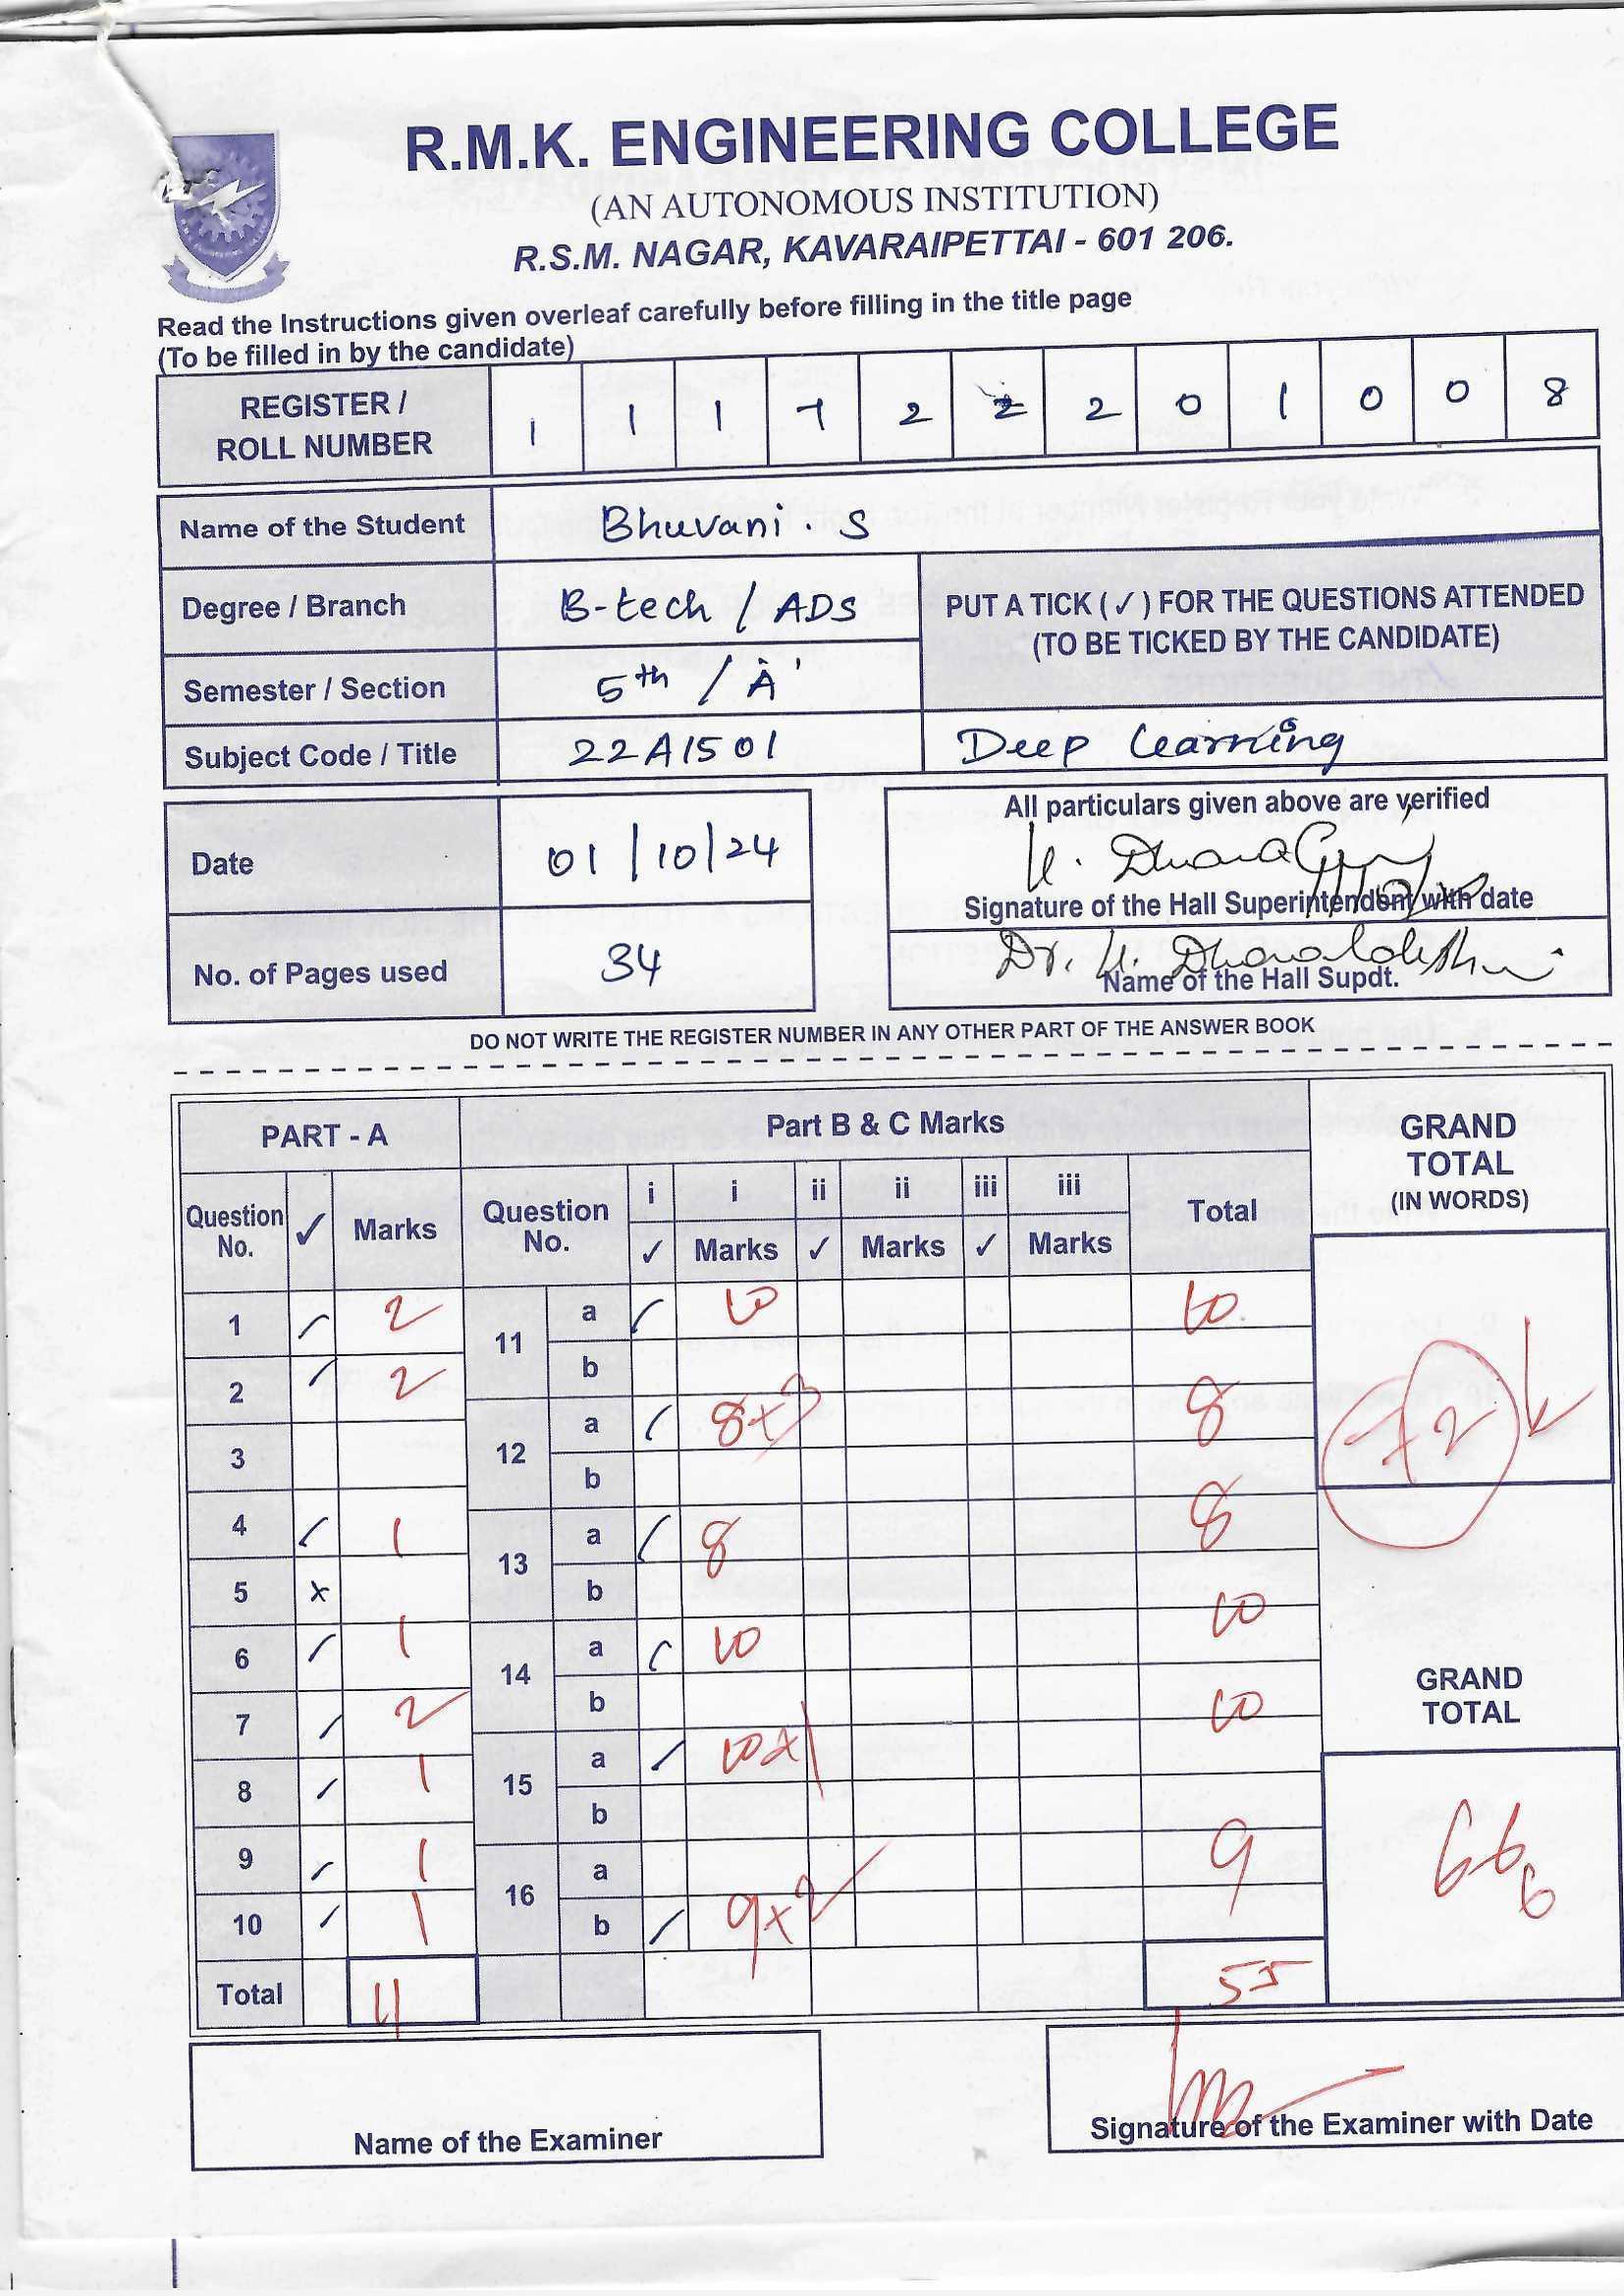 R.M.K. ENGINEERING COLLEGE
(AN AUTONOMOUS INSTITUTION)
R.S.M. NAGAR, KAVARAIPETTAI - 601 206.
Read the Instructions given overleaf carefully before filling in the title page
(To be filled in by the candidate)
REGISTER / ROLL NUMBER 1 1 1 7 2 2 2 0 1 0 0 8
Name of the Student Bhuvani . S
Degree / Branch B-tech / ADS
PUT A TICK ( ✓ ) FOR THE QUESTIONS ATTENDED
(TO BE TICKED BY THE CANDIDATE)
Semester / Section 5th / 'A'
Subject Code / Title 22AI501 Deep learning
All particulars given above are verified
Date 01/10/24
Signature of the Hall Superintendent with date
No. of Pages used 34
Dr.
Name of the Hall Supdt.
DO NOT WRITE THE REGISTER NUMBER IN ANY OTHER PART OF THE ANSWER BOOK
PART - A Part B & C Marks GRAND TOTAL (IN WORDS)
Question No. ✓ Marks Question No. i ✓ i Marks ii ✓ ii Marks iii ✓ iii Marks Total
1 ✓ 2 11 a ✓ 10 10
2 ✓ 2 b
3 12 a ✓ 8+3 8
72
b
4 ✓ 1 13 a ✓ 8 8
5 x b
6 ✓ 1 14 a ✓ 10 10
GRAND TOTAL
7 ✓ 2 b
8 ✓ 1 15 a ✓ 10+1 10
b
9 ✓ 1 16 a 9
66
6
10 ✓ 1 b ✓ 9+2
Total 11 55
Name of the Examiner
Signature of the Examiner with Date